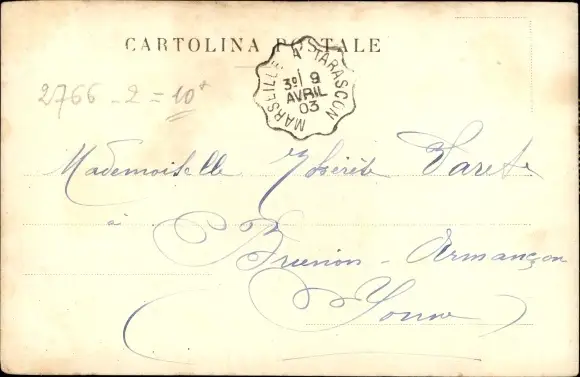 CARTOLINA POSTALE
MARSEILLE A TARASCON
3º 9
AVRIL
03
2766 - 2 = 10
Mademoiselle
à
Brienon - Armançon
Yonne